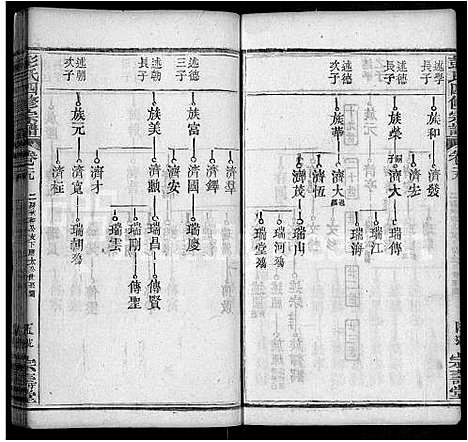 彭氏四修宗譜
宗壽堂
述學長子
族和
濟發
濟宏
述德長子
族榮
濟大
瑞傳
瑞江
瑞海
述德次子
族華
濟大
濟恆
濟茂
瑞山
瑞河
瑞堂
述德三子
族富
濟羣
濟鐸
濟安
瑞慶
述朝長子
族美
濟勳
瑞昌
瑞剛
瑞雲
傳賢
傳聖
述朝次子
族元
濟才
濟寬
濟在
瑞朝
彭氏四修宗譜
宗壽堂